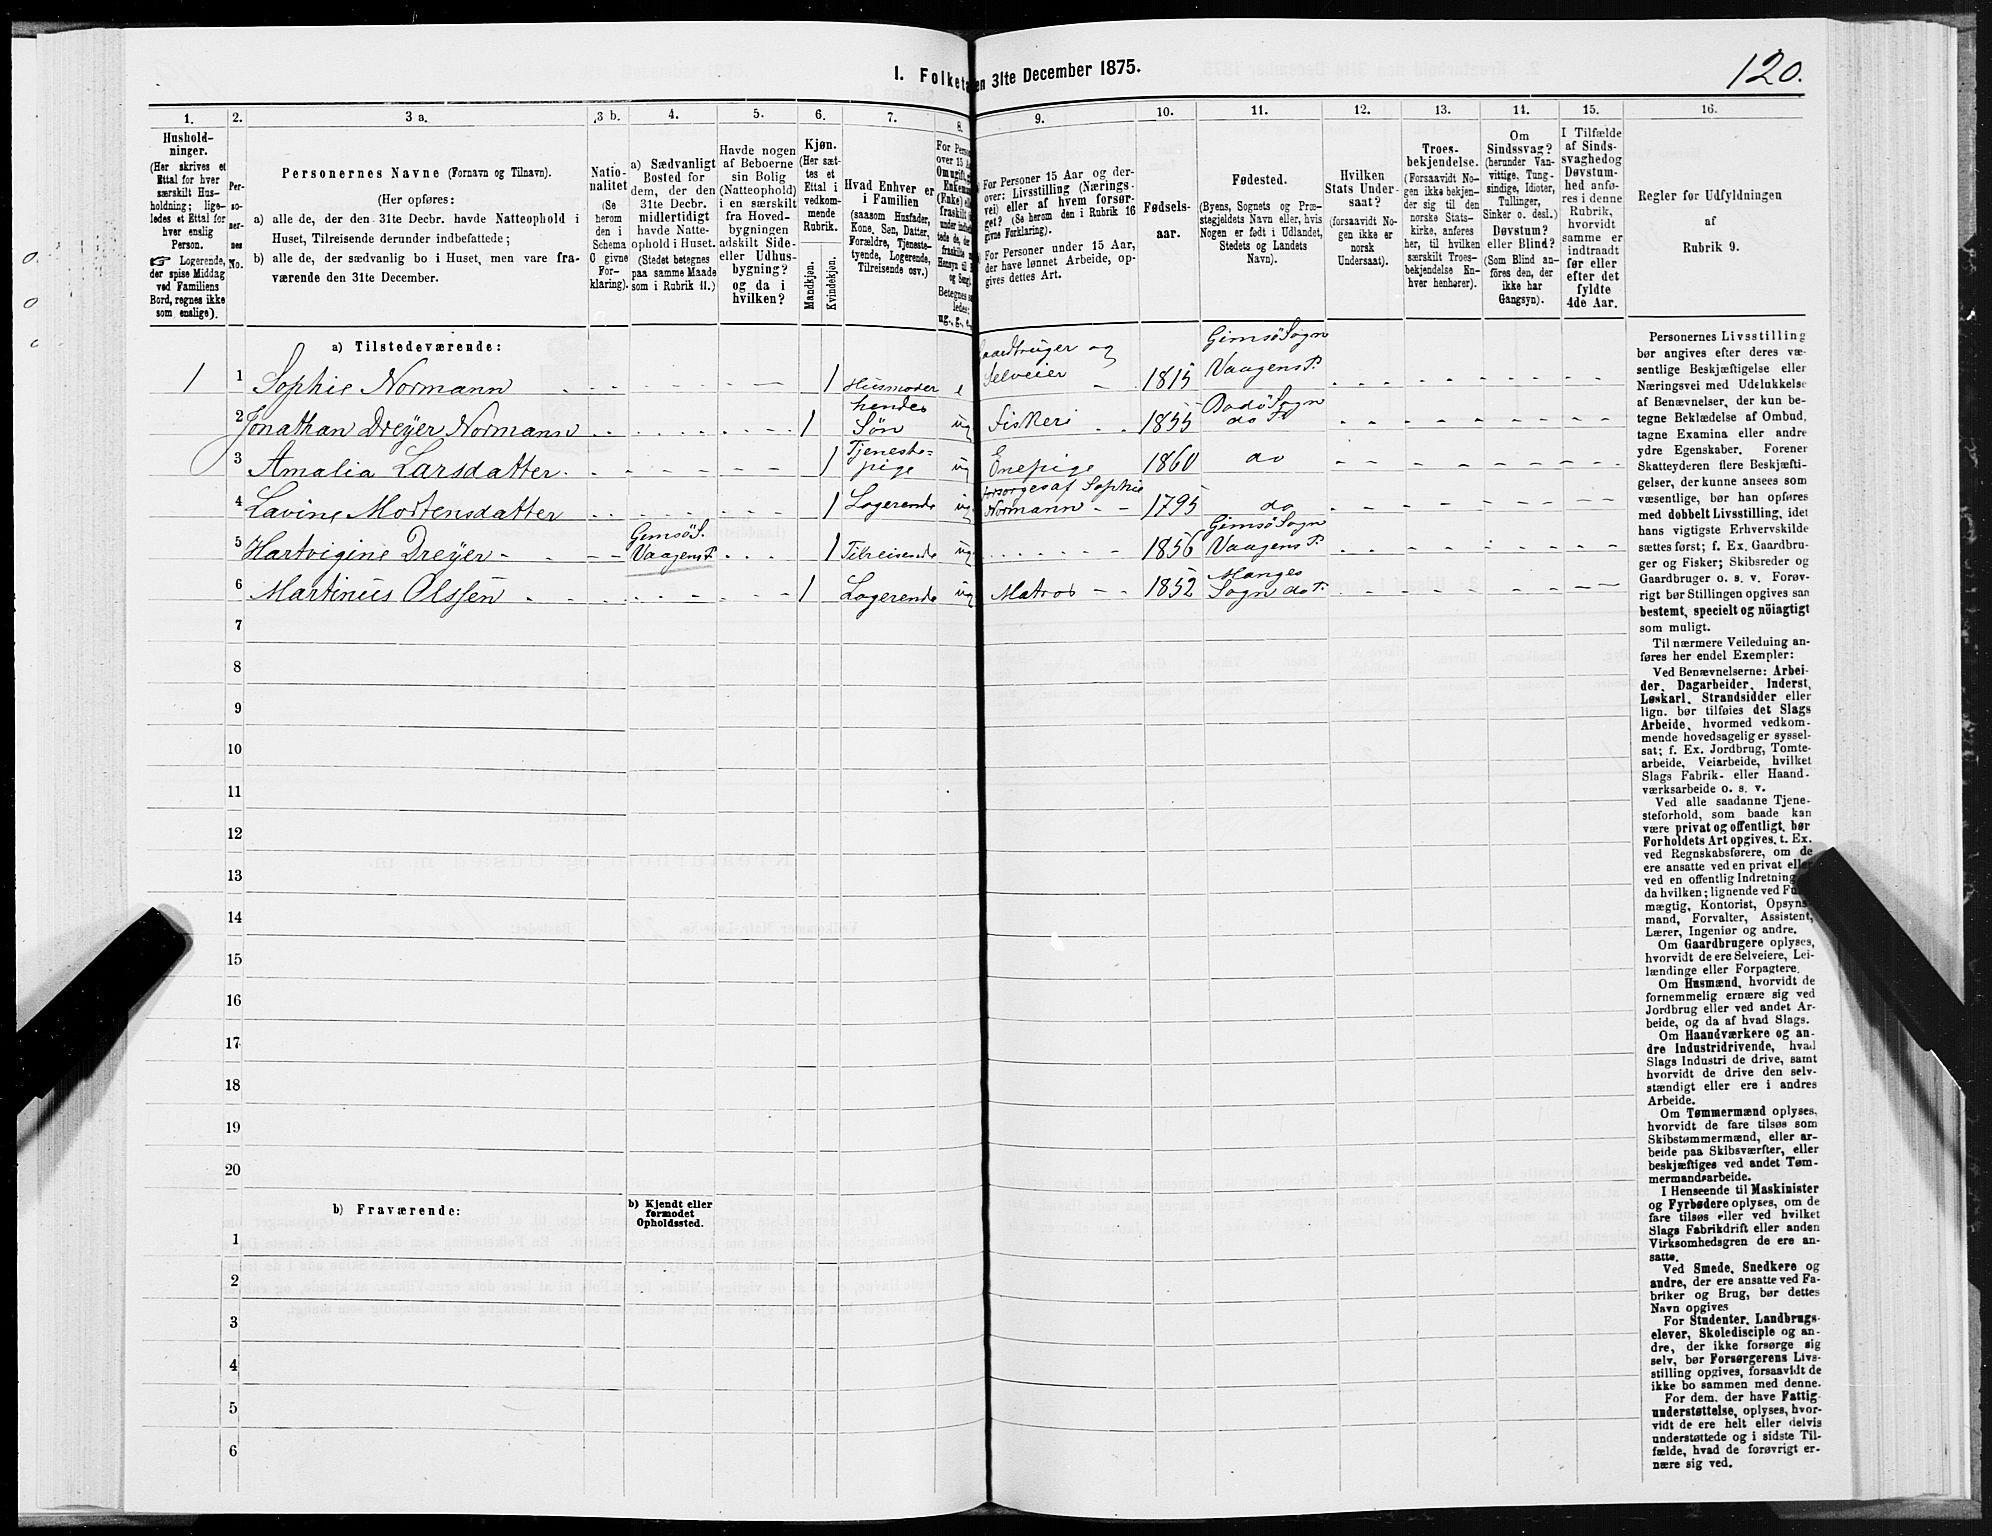 120.
1. Folketæ en 31te December 1875.
1. 2. 3 a. 3 b. 4. 5. 6. 7. 8. 9. 10. 11. 12. 13. 14. 15. 16.
Hushold-
ninger.
(Her skrives et
Ettal for hver
særskilt Hus-
holdning; lige-
ledes et Ettal for
hver enslig
Person.
☞ Logerende,
der spise Middag
ved Familiens
Bord, regnes ikke
som enslige).
Per-
so-
ner-
nes
No.
Personernes Navne (Fornavn og Tilnavn).
(Her opføres:
a) alle de, der den 31te Decbr. havde Natteophold i
Huset, Tilreisende derunder indbefattede;
b) alle de, der sædvanlig bo i Huset, men vare fra-
værende den 31te December.
Natio-
nalitet
(Se
herom
den i
Schema
O givne
For-
klaring).
a) Sædvanligt
Bosted for
dem, der den
31te Decbr.
midlertidigt
havde Natte-
ophold i Huset.
(Stedet betegnes
paa samme Maade
som i Rubrik 11.)
Havde nogen
af Beboerne
sin Bolig
(Natteophold)
i en særskilt
fra Hoved-
bygningen
adskilt Side-
eller Udhus-
bygning?
og da i
hvilken?
Kjøn.
(Her sæt-
tes et
Ettal i
vedkom-
mende
Rubrik.
Mandkjøn.
Kvindekjøn.
Hvad Enhver er
i Familien
(saasom Husfader,
Kone, Søn, Datter,
Forældre, Tjeneste-
tyende, Logerende,
Tilreisende osv.)
For Perso
over 15 A
Om ugift, g
Enkema
(Enke) elle
fraskilt
under indbe
tede de, de
fraskilte
Hensyn til
og Seng)
Betegnes sa
ledes:
ug., g., e.,
For Personer 15 Aar og der-
over: Livsstilling (Nærings-
vei) eller af hvem forsør-
get? (Se herom i Rubrik 16
givne Forklaring).
For Personer under 15 Aar,
der have lønnet Arbeide, op-
gives dettes Art.
Fødsels-
aar.
Fødested.
(Byens, Sognets og Præ-
stegjeldets Navn eller, hvis
Nogen er født i Udlandet,
Stedets og Landets
Navn).
Hvilken
Stats Under-
saat?
(forsaavidt No-
gen ikke er
norsk
Undersaat).
Troes-
bekjendelse.
(Forsaavidt No-
gen ikke bekjen-
der sig til den
norske Stats-
kirke, anføres
her, til hvilken
særskilt Troes-
bekjendelse En-
hver henhører).
Om
Sindssvag?
(herunder Van-
vittige, Tung-
sindige, Idioter,
Tullinger,
Sinker o. desl.)
Døvstum?
eller Blind?
(Som Blind an-
føres den, der
ikke har
Gangsyn).
I Tilfælde
af Sinds-
svaghed og
Døvstum-
hed anfø-
res i denne
Rubrik,
hvorvidt
samme er
indtraadt
før eller
efter det
fyldte
4de Aar.
Regler for Udfyldningen
af
Rubrik 9.
a) Tilstedeværende:
1 1 Sophie Normann 1 Husmoder e Gaardbruger og Selveier 1815 Gimsø Sogn Vaagens P.
2 Jonathan Dreyer Normann 1 hendes Søn ug Fiskeri 1855 Bodø Sogn do P.
3 Amalia Larsdatter 1 Tjeneste-pige ug Enepige 1860 do
4 Lavine Mortensdatter 1 Logerende ug forsørges af Sophie Normann 1795 do
5 Hartvigine Dreyer Gimsø S. Vaagens P. 1 Tilreisende ug 1856 Gimsø Sogn Vaagens P.
6 Martinus Olssen 1 Logerende ug Matros 1852 Manges Sogn do P.
7
8
9
10
11
12
13
14
15
16
17
18
19
20
b) Fraværende:
b) Kjendt eller
formodet
Opholdssted.
1
2
3
4
5
6
Personernes Livsstilling
bør angives efter deres væ-
sentlige Beskjæftigelse eller
Næringsvei med Udelukkelse
af Benævnelser, der kun be-
tegne Beklædelse af Ombud,
tagne Examina eller andre
ydre Egenskaber. Forener
Skatteyderen flere Beskjæfti-
gelser, der kunne ansees som
væsentlige, bør han opføres
med dobbelt Livsstilling, idet
hans vigtigste Erhvervskilde
sættes først; f. Ex. Gaardbru-
ger og Fisker; Skibsreder og
Gaardbruger o. s. v. Forøv-
rigt bør Stillingen opgives saa
bestemt, specielt og nöiagtigt
som muligt.
Til nærmere Veiledning an-
føres her endel Exempler:
Ved Benævnelserne: Arbei-
der, Dagarbeider, Inderst,
Løskarl, Strandsidder eller
lign. bør tilføies det Slags
Arbeide, hvormed vedkom-
mende hovedsagelig er syssel-
sat; f. Ex. Jordbrug, Tomte-
arbeide, Veiarbeide, hvilket
Slags Fabrik- eller Haand-
værksarbeide o. s. v.
Ved alle saadanne Tjene-
steforhold, som baade kan
være privat og offentligt, bør
Forholdets Art opgives, t. Ex.
ved Regnskabsførere, om de
ere ansatte ved en privat eller
ved en offentlig Indretning
da hvilken; lignende ved Ful-
mægtig, Kontorist, Opsyns-
mand, Forvalter, Assistent,
Lærer, Ingeniør og andre.
Om Gaardbrugere oplyses,
hvorvidt de ere Selveiere, Lei-
lændinge eller Forpagtere.
Om Husmænd, hvorvidt de
fornemmelig ernære sig ved
Jordbrug eller ved andet Ar-
beide, og da af hvad Slags.
Om Haandværkere og an-
dre Industridrivende, hvad
Slags Industri de drive, samt
hvorvidt de drive den selv-
stændigt eller ere i andres
Arbeide.
Om Tømmermænd oplyses,
hvorvidt de fare tilsøs som
Skibstømmermænd, eller ar-
beide paa Skibsværfter, eller
beskjæftiges ved andet Tøm-
mermandsarbeide.
I Henseende til Maskinister
og Fyrbødere oplyses, om de
fare tilsøs eller ved hvilket
Slags Fabrikdrift eller anden
Virksomhedsgren de ere an-
satte.
Ved Smede, Snedkere og
andre, der ere ansatte ved Fa-
briker og Brug, bør dettes
Navn opgives
For Studenter, Landbrugs-
elever, Skoledisciple og an-
dre, der ikke forsørge sig
selv, bør Forsørgerens Livs-
stilling opgives, forsaavidt de
ikke bo sammen med denne.
For dem, der have Fattig-
understøttelse, oplyses, hvor-
vidt de ere helt eller delvis
understøttede og i sidste Til-
fælde, hvad de forøvrigt er-
nære sig ved.